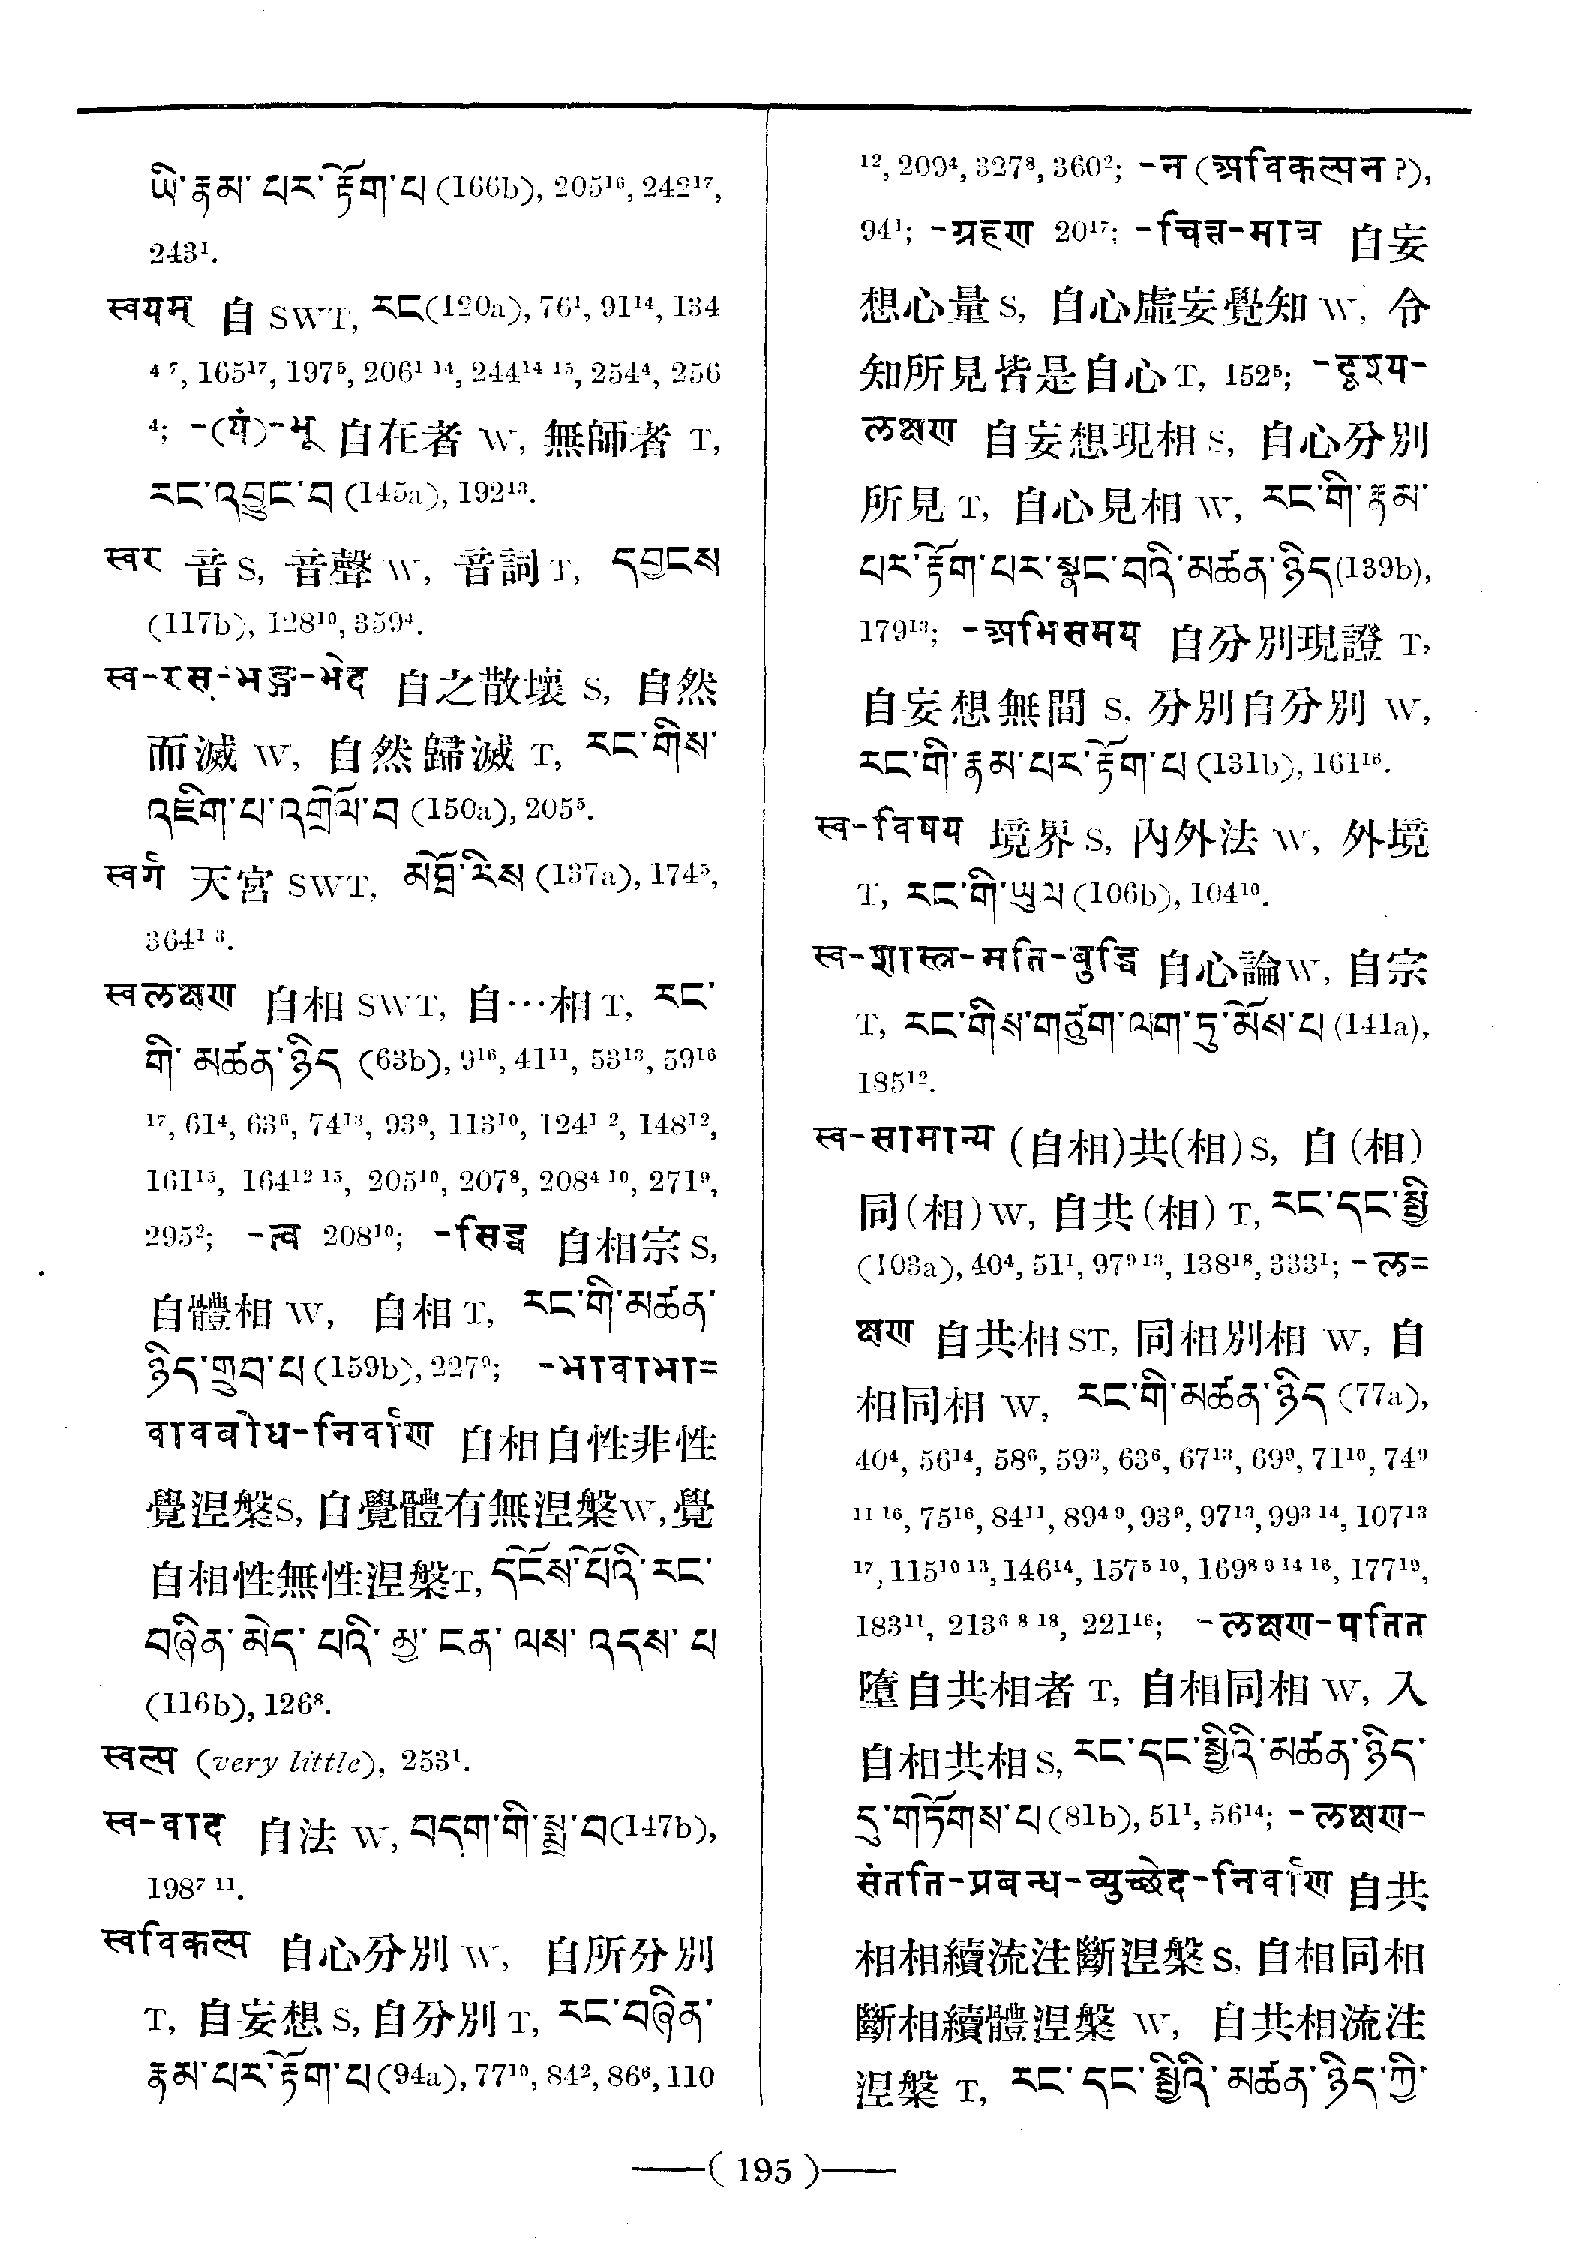 ཡི་རྣམ་པར་རྟོག་པ (166b), 205¹⁶, 242¹⁷,
243¹.
स्वयम् 自 SWT, རང(120a), 76¹, 91¹⁴, 134
⁴ ⁷, 165¹⁷, 197⁵, 206¹ ¹⁴, 244¹⁴ ¹⁵, 254⁴, 256
⁴; -(यं)-भू 自在者 W, 無師者 T,
རང་འབྱུང་བ (145a), 192¹³.
स्वर 音 S, 音聲 W, 音詞 T, དབྱངས
(117b), 128¹⁰, 359⁴.
स्व-रस-भङ्ग-भेद 自之散壞 S, 自然
而滅 W, 自然歸滅 T, རང་གིས་
འཇིག་པ་འགྲོལ་བ (150a), 205⁵.
स्वर्ग 天宮 SWT, མཐོ་རིས (137a), 174⁵,
364¹ ³.
स्वलक्षण 自相 SWT, 自…相 T, རང་
གི་མཚན་ཉིད (63b), 9¹⁶, 41¹¹, 53¹³, 59¹⁶
¹⁷, 61⁴, 63⁶, 74¹³, 93⁹, 113¹⁰, 124¹ ², 148¹²,
161¹⁵, 164¹² ¹⁵, 205¹⁰, 207⁸, 208⁴ ¹⁰, 271⁹,
295²; -त्व 208¹⁰; -सिद्ध 自相宗 S,
自體相 W, 自相 T, རང་གི་མཚན་
ཉིད་གྲུབ་པ (159b), 227⁹; -भावाभा=
वावबोध-निर्वाण 自相自性非性
覺涅槃S, 自覺體有無涅槃W, 覺
自相性無性涅槃T, དངོས་པོའི་རང་
བཞིན་མེད་པའི་མྱ་ངན་ལས་འདས་པ
(116b), 126⁸.
स्वल्प (very little), 253¹.
स्व-वाद 自法 W, བདག་གི་སྨྲ་བ(147b),
198⁷ ¹¹.
स्वविकल्प 自心分別 W, 自所分別
T, 自妄想 S, 自分別 T, རང་བཞིན་
རྣམ་པར་རྟོག་པ(94a), 77¹⁰, 84², 86⁶, 110
¹², 209⁴, 327⁸, 360²; -न (अविकल्पन?),
94¹; -ग्रहण 20¹⁷; -चित्त-मात्र 自妄
想心量 S, 自心虛妄覺知 W, 令
知所見皆是自心 T, 152⁵; -दृश्य-
लक्षण 自妄想現相 S, 自心分別
所見 T, 自心見相 W, རང་གི་རྣམ་
པར་རྟོག་པར་སྣང་བའི་མཚན་ཉིད(139b),
179¹³; -अभिसमय 自分別現證 T,
自妄想無間 S, 分別自分別 W,
རང་གི་རྣམ་པར་རྟོག་པ (131b), 161¹⁶.
स्व-विषय 境界 S, 內外法 W, 外境
T, རང་གི་ཡུལ (106b), 104¹⁰.
स्व-शास्त्र-मति-बुद्धि 自心論W, 自宗
T, རང་གིས་གཙུག་ལག་ཏུ་མོས་པ (141a),
185¹².
स्व-सामान्य (自相)共(相) S, 自 (相)
同(相) W, 自共 (相) T, རང་དང་སྤྱི
(103a), 40⁴, 51¹, 97⁹ ¹³, 138¹⁸, 333¹; -ल=
क्षण 自共相ST, 同相別相 W, 自
相同相 W, རང་གི་མཚན་ཉིད (77a),
40⁴, 56¹⁴, 58⁶, 59³, 63⁶, 67¹³, 69⁹, 71¹⁰, 74⁹
¹¹ ¹⁶, 75¹⁶, 84¹¹, 89⁴ ⁹, 93⁹, 97¹³, 99³ ¹⁴, 107¹³
¹⁷, 115¹⁰ ¹³, 146¹⁴, 157⁵ ¹⁰, 169⁸ ⁹ ¹⁴ ¹⁶, 177¹⁹,
183¹¹, 213⁶ ⁸ ¹⁸, 221¹⁶; -लक्षण-पतित
墮自共相者 T, 自相同相 W, 入
自相共相 S, རང་དང་སྤྱིའི་མཚན་ཉིད་
དུ་གཏོགས་པ (81b), 51¹, 56¹⁴; -लक्षण-
संतति-प्रबन्ध-व्युच्छेद-निर्वाण 自共
相相續流注斷涅槃 S, 自相同相
斷相續體涅槃 W, 自共相流注
涅槃 T, རང་དང་སྤྱིའི་མཚན་ཉིད་ཀྱི་
( 195 )